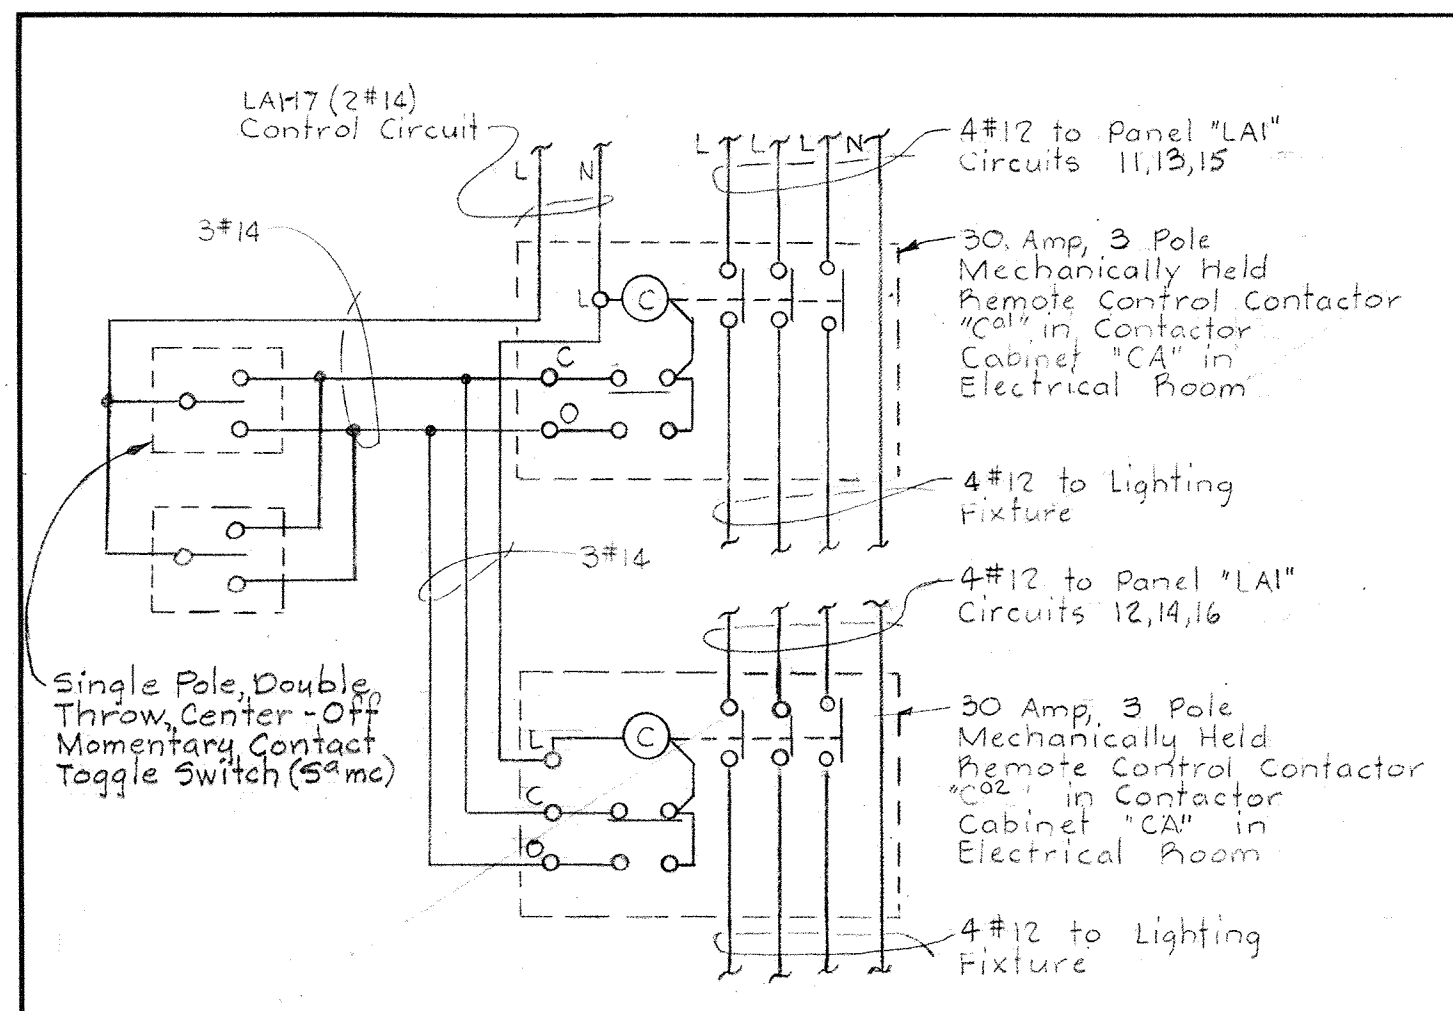 LAH7 (2#14)
Control Circuit
L N
L L L N
4#12 to Panel "LA1"
Circuits 11,13,15
3#14
30 Amp, 3 Pole
Mechanically Held
Remote Control Contactor
"Ca1" in Contactor
Cabinet "CA" in
Electrical Room
L C
C
O
4#12 to Lighting
Fixture
3#14
4#12 to Panel "LA1"
Circuits 12,14,16
Single Pole, Double
Throw, Center-Off
Momentary Contact
Toggle Switch (Samc)
30 Amp, 3 Pole
Mechanically Held
Remote Control Contactor
"Ca2" in Contactor
Cabinet "CA" in
Electrical Room
L C
C
O
4#12 to Lighting
Fixture